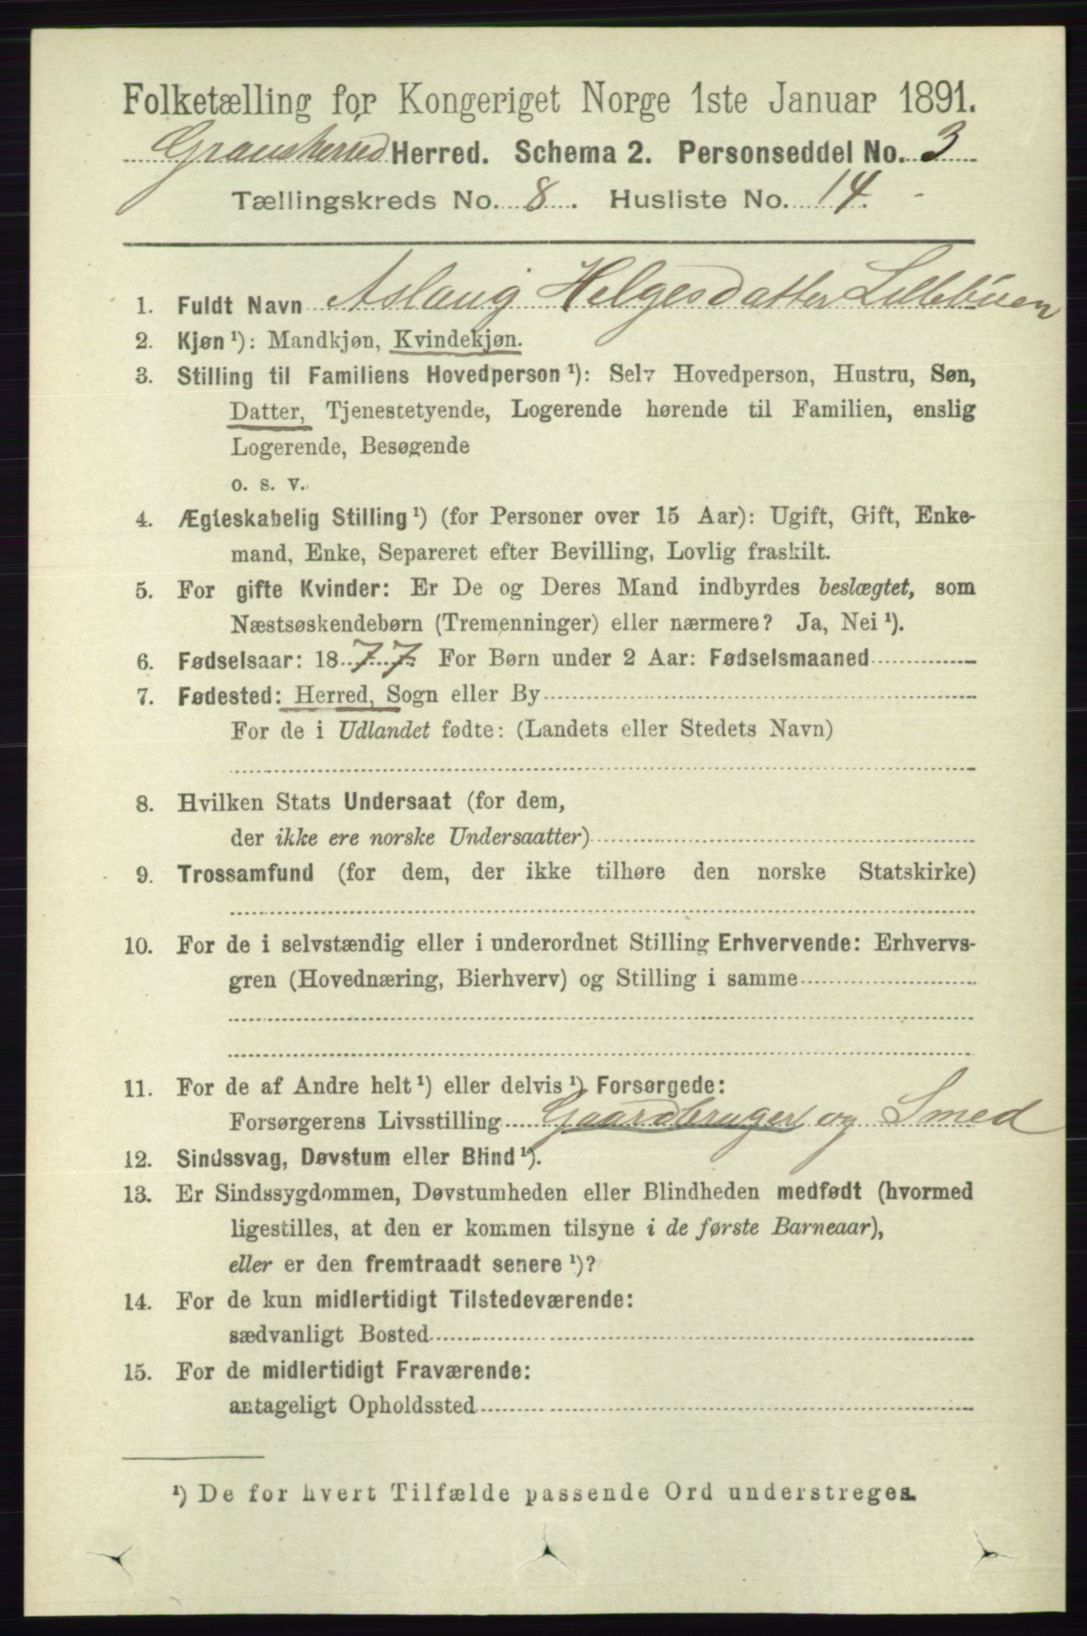 Folketælling for Kongeriget Norge 1ste Januar 1891.
Gransherred Herred. Schema 2. Personseddel No. 3
Tællingskreds No. 8. Husliste No. 14.
1. Fuldt Navn Aslaug Helgesdatter Lillebuen
2. Kjøn ¹): Mandkjøn, Kvindekjøn.
3. Stilling til Familiens Hovedperson ¹): Selv Hovedperson, Hustru, Søn,
Datter, Tjenestetyende, Logerende hørende til Familien, enslig
Logerende, Besøgende
o. s. v.
4. Ægteskabelig Stilling ¹) (for Personer over 15 Aar): Ugift, Gift, Enke-
mand, Enke, Separeret efter Bevilling, Lovlig fraskilt.
5. For gifte Kvinder: Er De og Deres Mand indbyrdes beslægtet, som
Næstsøskendebørn (Tremenninger) eller nærmere? Ja, Nei ¹).
6. Fødselsaar: 1877. For Børn under 2 Aar: Fødselsmaaned
7. Fødested: Herred, Sogn eller By
For de i Udlandet fødte: (Landets eller Stedets Navn)
8. Hvilken Stats Undersaat (for dem,
der ikke ere norske Undersaatter)
9. Trossamfund (for dem, der ikke tilhøre den norske Statskirke)
10. For de i selvstændig eller i underordnet Stilling Erhvervende: Erhvervs-
gren (Hovednæring, Bierhverv) og Stilling i samme
11. For de af Andre helt ¹) eller delvis ¹) Forsørgede:
Forsørgerens Livsstilling Gaardbruger og Smed
12. Sindssvag, Døvstum eller Blind ¹).
13. Er Sindssygdommen, Døvstumheden eller Blindheden medfødt (hvormed
ligestilles, at den er kommen tilsyne i de første Barneaar),
eller er den fremtraadt senere ¹)?
14. For de kun midlertidigt Tilstedeværende:
sædvanligt Bosted
15. For de midlertidigt Fraværende:
antageligt Opholdssted
¹) De for hvert Tilfælde passende Ord understreges.